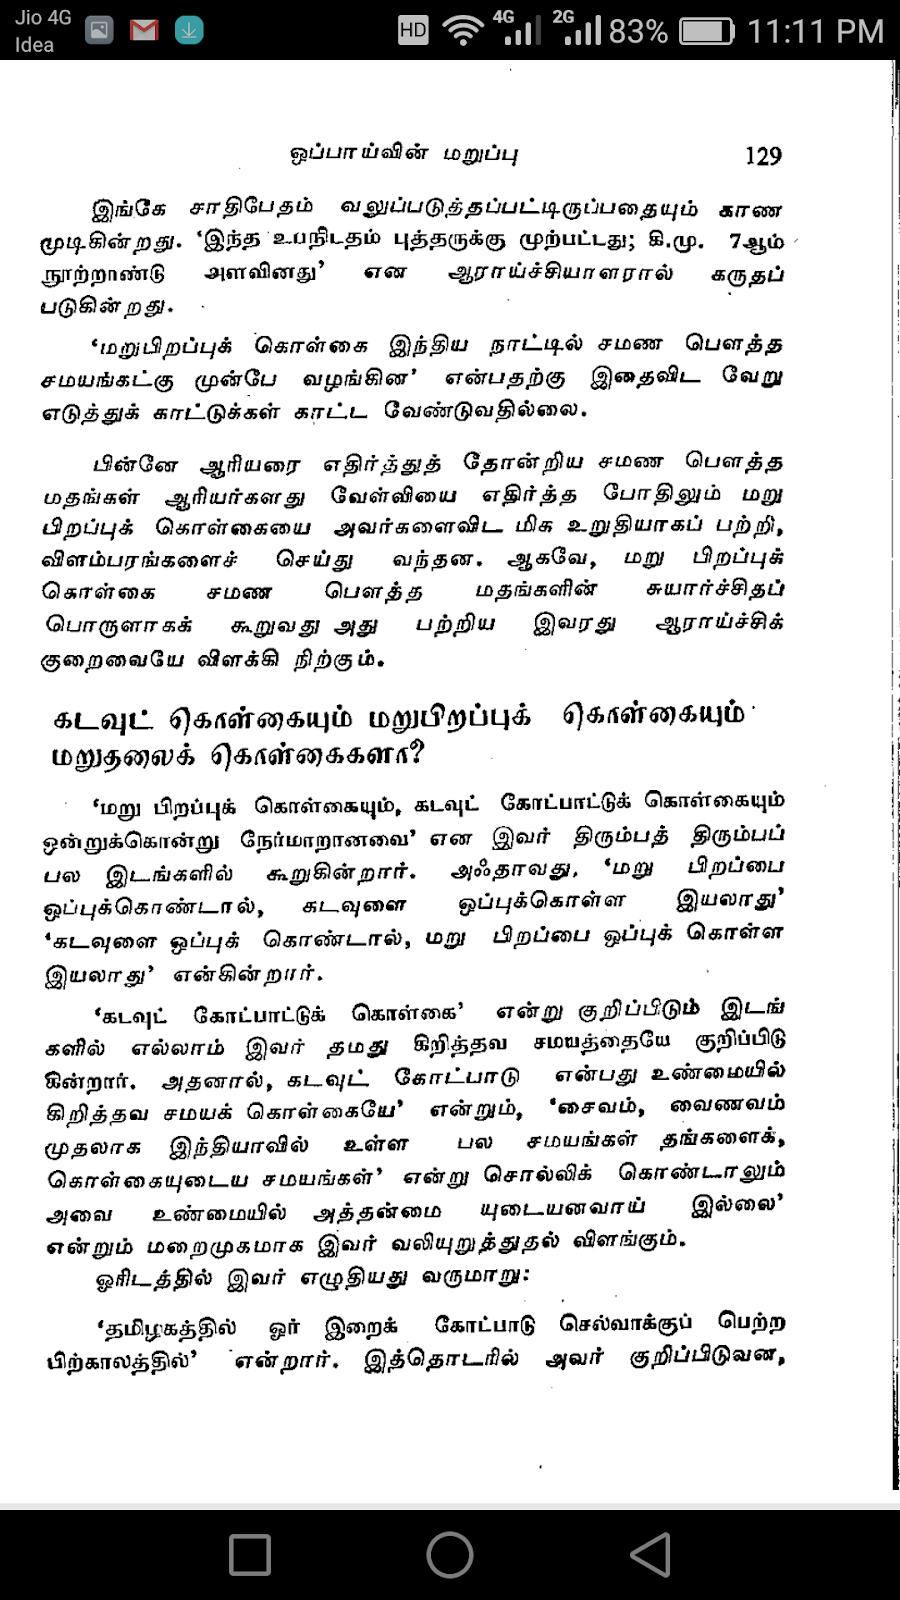 Jio 4G
Idea
HD
4G
2G
83%
11:11 PM
ஒப்பாய்வின் மறுப்பு 129
இங்கே சாதிபேதம் வலுப்படுத்தப்பட்டிருப்பதையும் காண
முடிகின்றது. ‘இந்த உபநிடதம் புத்தருக்கு முற்பட்டது; கி.மு. 7ஆம்
நூற்றாண்டு அளவினது’ என ஆராய்ச்சியாளரால் கருதப்
படுகின்றது.
‘மறுபிறப்புக் கொள்கை இந்திய நாட்டில் சமண பௌத்த
சமயங்கட்கு முன்பே வழங்கின’ என்பதற்கு இதைவிட வேறு
எடுத்துக் காட்டுக்கள் காட்ட வேண்டுவதில்லை.
பின்னே ஆரியரை எதிர்த்துத் தோன்றிய சமண பௌத்த
மதங்கள் ஆரியர்களது வேள்வியை எதிர்த்த போதிலும் மறு
பிறப்புக் கொள்கையை அவர்களைவிட மிக உறுதியாகப் பற்றி,
விளம்பரங்களைச் செய்து வந்தன. ஆகவே, மறு பிறப்புக்
கொள்கை சமண பௌத்த மதங்களின் சுயார்ச்சிதப்
பொருளாகக் கூறுவது அது பற்றிய இவரது ஆராய்ச்சிக்
குறைவையே விளக்கி நிற்கும்.
கடவுட் கொள்கையும் மறுபிறப்புக் கொள்கையும்
மறுதலைக் கொள்கைகளா?
‘மறு பிறப்புக் கொள்கையும், கடவுட் கோட்பாட்டுக் கொள்கையும்
ஒன்றுக்கொன்று நேர்மாறானவை’ என இவர் திரும்பத் திரும்பப்
பல இடங்களில் கூறுகின்றார். அஃதாவது, ‘மறு பிறப்பை
ஒப்புக்கொண்டால், கடவுளை ஒப்புக்கொள்ள இயலாது’
‘கடவுளை ஒப்புக் கொண்டால், மறு பிறப்பை ஒப்புக் கொள்ள
இயலாது’ என்கின்றார்.
‘கடவுட் கோட்பாட்டுக் கொள்கை’ என்று குறிப்பிடும் இடங்
களில் எல்லாம் இவர் தமது கிறித்தவ சமயத்தையே குறிப்பிடு
கின்றார். அதனால், கடவுட் கோட்பாடு என்பது உண்மையில்
கிறித்தவ சமயக் கொள்கையே’ என்றும், ‘சைவம், வைணவம்
முதலாக இந்தியாவில் உள்ள பல சமயங்கள் தங்களைக்,
கொள்கையுடைய சமயங்கள்’ என்று சொல்லிக் கொண்டாலும்
அவை உண்மையில் அத்தன்மை யுடையனவாய் இல்லை’
என்றும் மறைமுகமாக இவர் வலியுறுத்துதல் விளங்கும்.
ஓரிடத்தில் இவர் எழுதியது வருமாறு:
‘தமிழகத்தில் ஓர் இறைக் கோட்பாடு செல்வாக்குப் பெற்ற
பிற்காலத்தில்’ என்றார். இத்தொடரில் அவர் குறிப்பிடுவன,